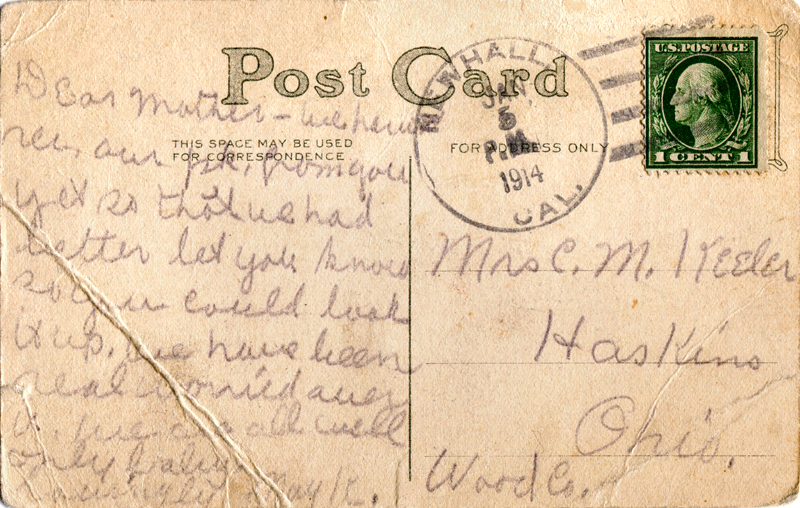 Post Card
THIS SPACE MAY BE USED
FOR CORRESPONDENCE
FOR ADDRESS ONLY
NEWHALL
JAN
5
P.M.
1914
CAL.
U.S. POSTAGE
1 CENT 1
Dear Mother – we have
rec. our from you
yet so that we had
better let you know
so you could look
it up. We have been
real worried over
it. We are all well
only baby
May K.
Mrs C. M. Keeler
Haskins
Ohio.
Wood Co.